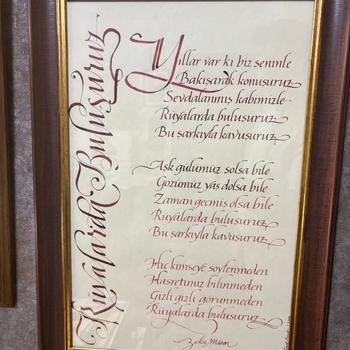 Rüyalarda Buluşuruz
Yıllar var ki biz seninle
Bakışarak konuşuruz
Sevdalanmış kalbimizle
Rüyalarda buluşuruz
Bu şarkıyla kavuşuruz
Aşk gülümüz solsa bile
Gözümüz yaş dolsa bile
Zaman geçmiş olsa bile
Rüyalarda buluşuruz
Bu şarkıyla kavuşuruz
Hiç kimseye söylenmeden
Hasretimiz bilinmeden
Gizli gizli görünmeden
Rüyalarda buluşuruz
Zeki Müren